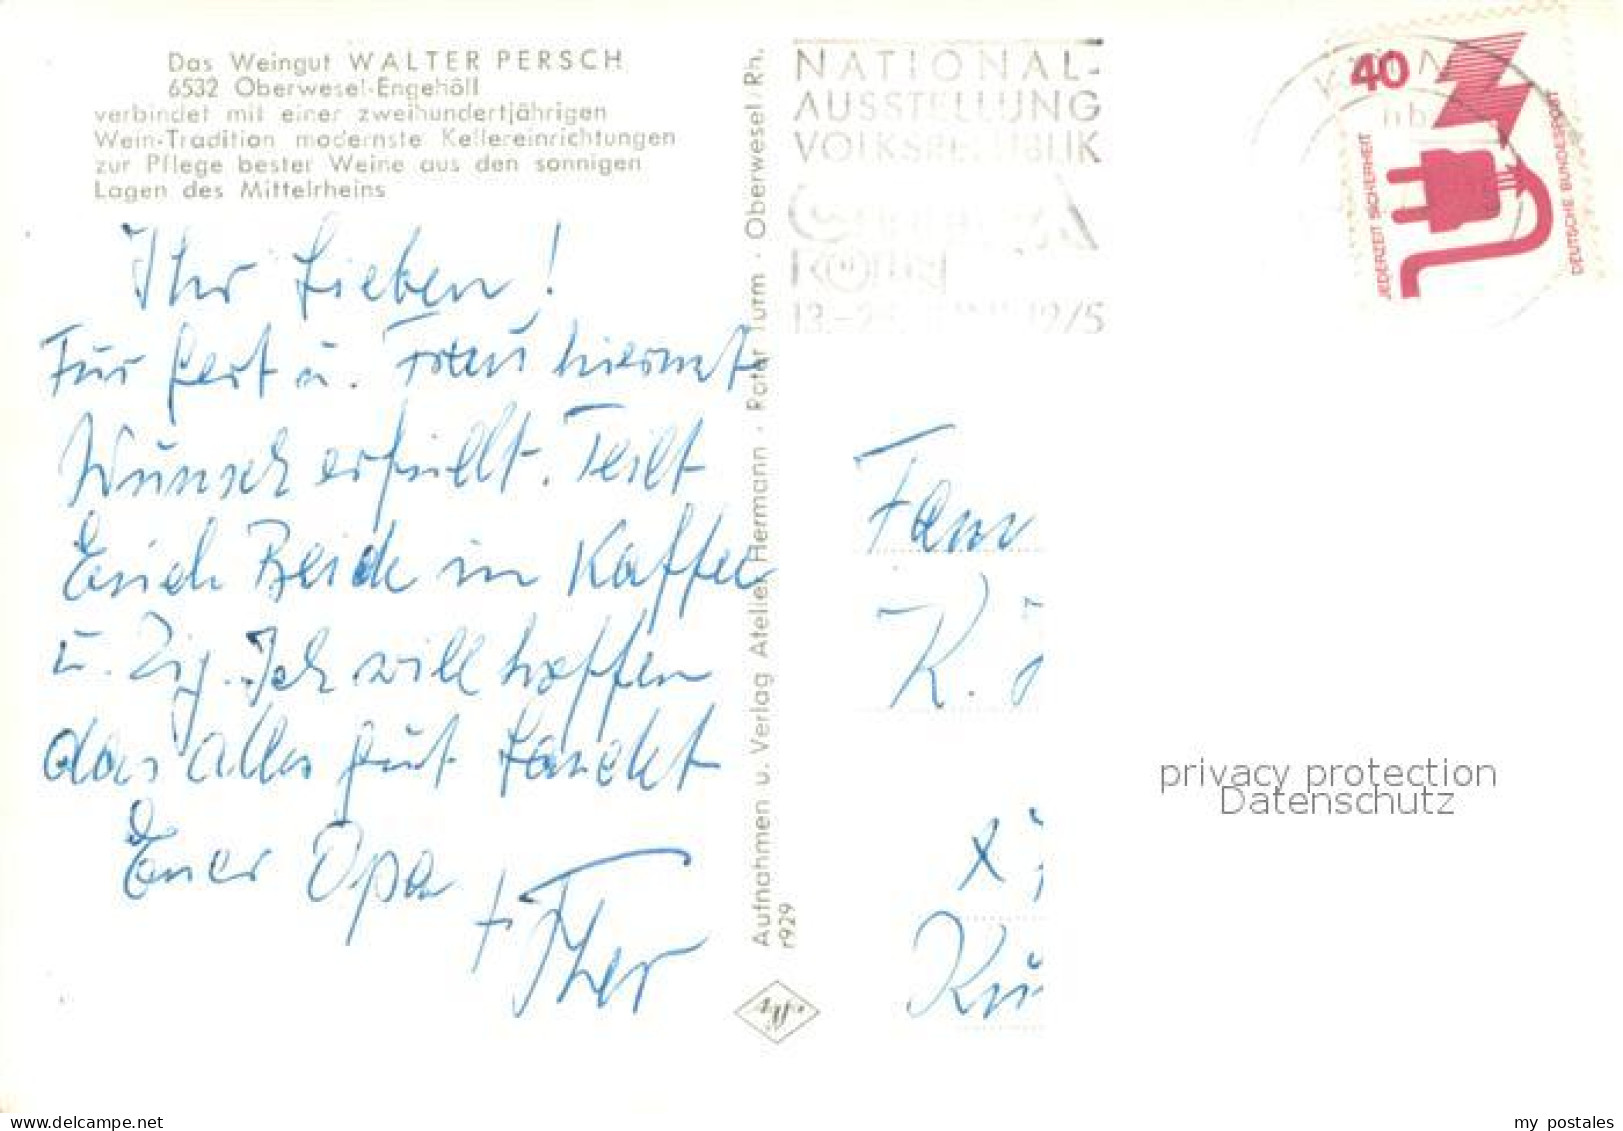 Das Weingut WALTER PERSCH
6532 Oberwesel-Engehöll
verbindet mit einer zweihundertjährigen
Wein-Tradition modernste Kellereinrichtungen
zur Pflege bester Weine aus den sonnigen
Lagen des Mittelrheins
Ihr Lieben!
Für Gert u. Frau hiermit
Wunsch erfüllt. Teilt
Euch Beide in Kaffee
u. Zig. Ich will hoffen
das alles gut landet
Euer Opa
+ Ther
Aufnahmen u. Verlag Atelier Hermann · Roter Turm · Oberwesel/Rh.
r929
Agfa
NATIONAL-
AUSSTELLUNG
VOLKSREPUBLIK
KÖLN
40
JEDERZEIT SICHERHEIT
DEUTSCHE BUNDESPOST
Fam
K.
privacy protection
Datenschutz
https://www.delcampe.net
my_postales